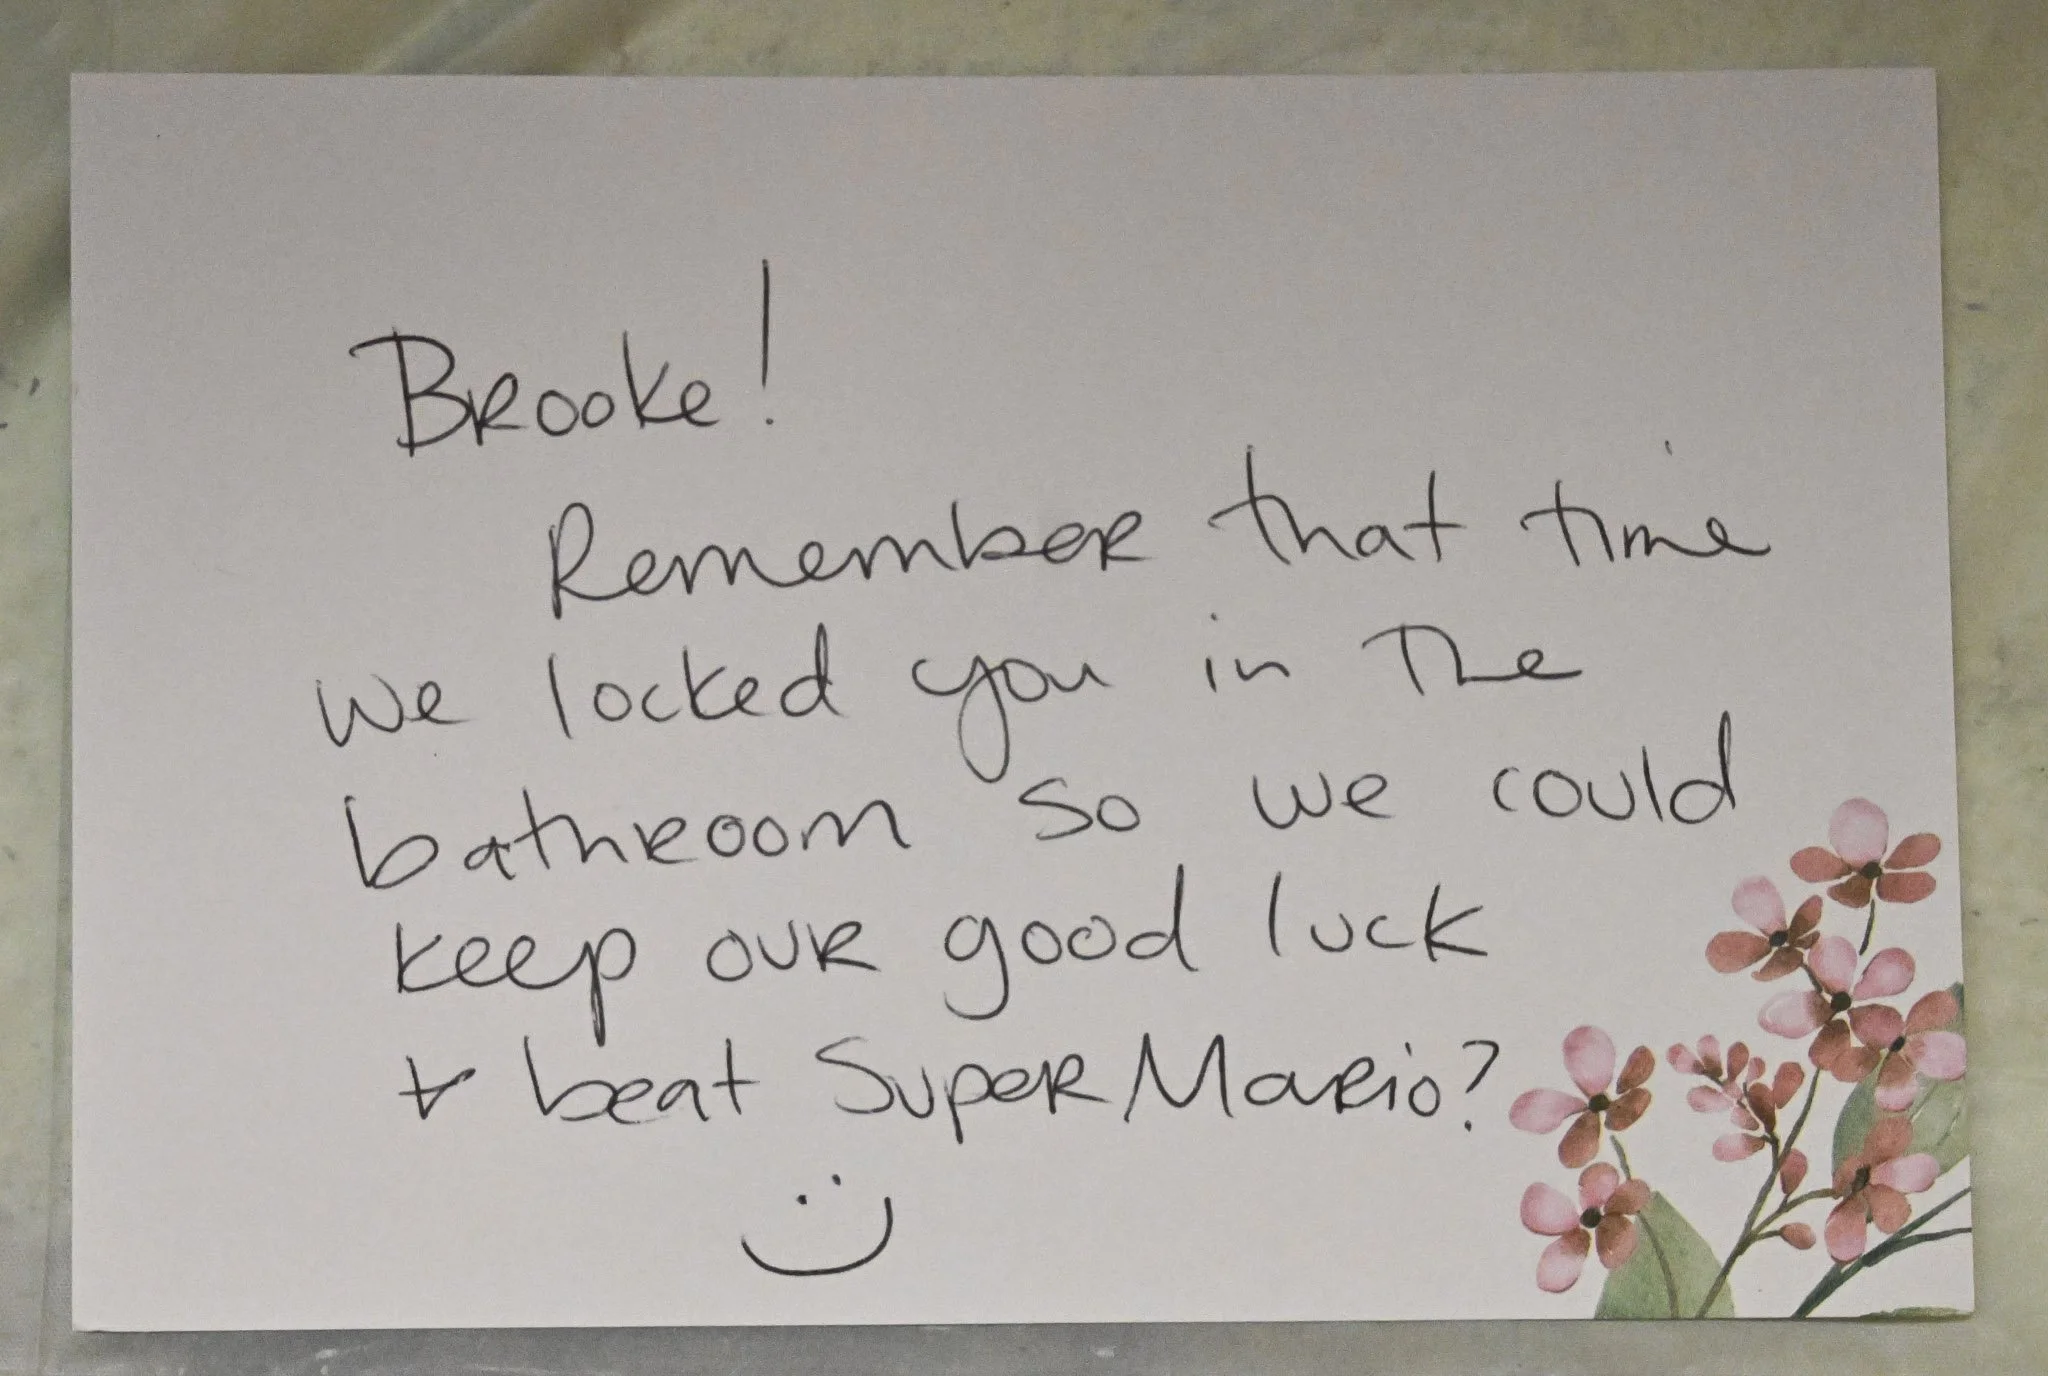 Brooke!
Remember that time
we locked you in the
bathroom so we could
keep our good luck
+ beat Super Mario?